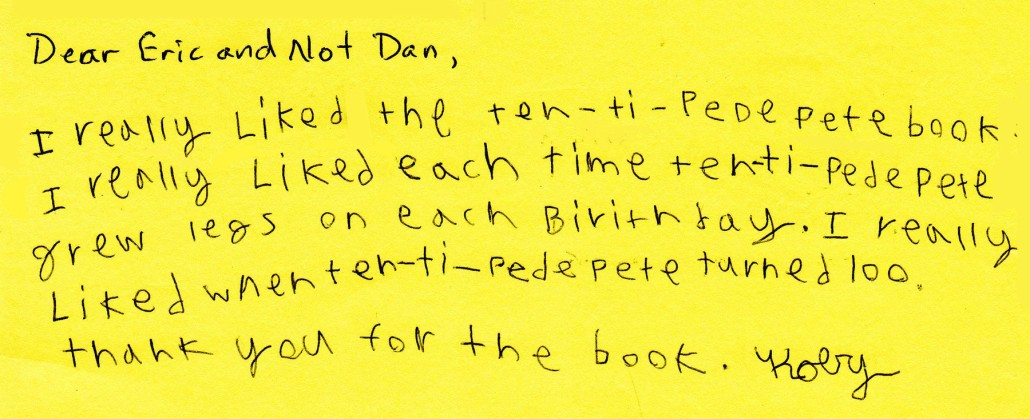 Dear Eric and Not Dan,
I really Liked the ten-ti-Pede pete book.
I really Liked each time tenti-pede pete
grew legs on each Birithday. I really
Liked when ten-ti-pede pete turned 100.
thank you for the book. Koby